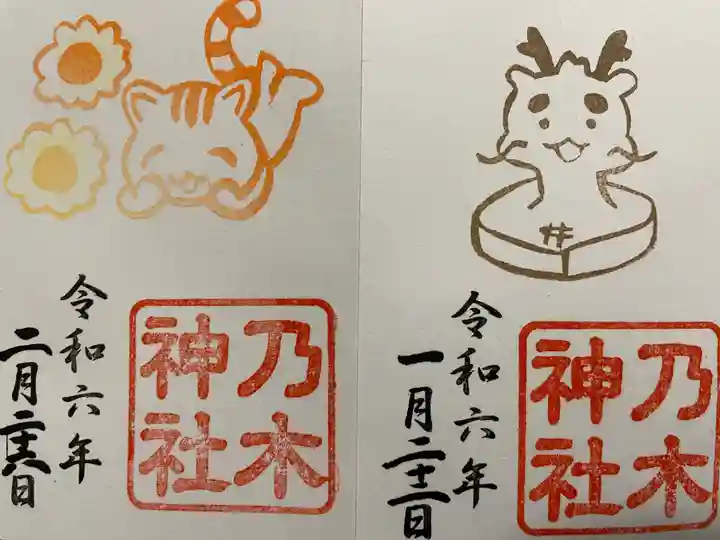 令和六年
二月二十六日
乃木
神社
令和六年
一月二十一日
乃木
神社